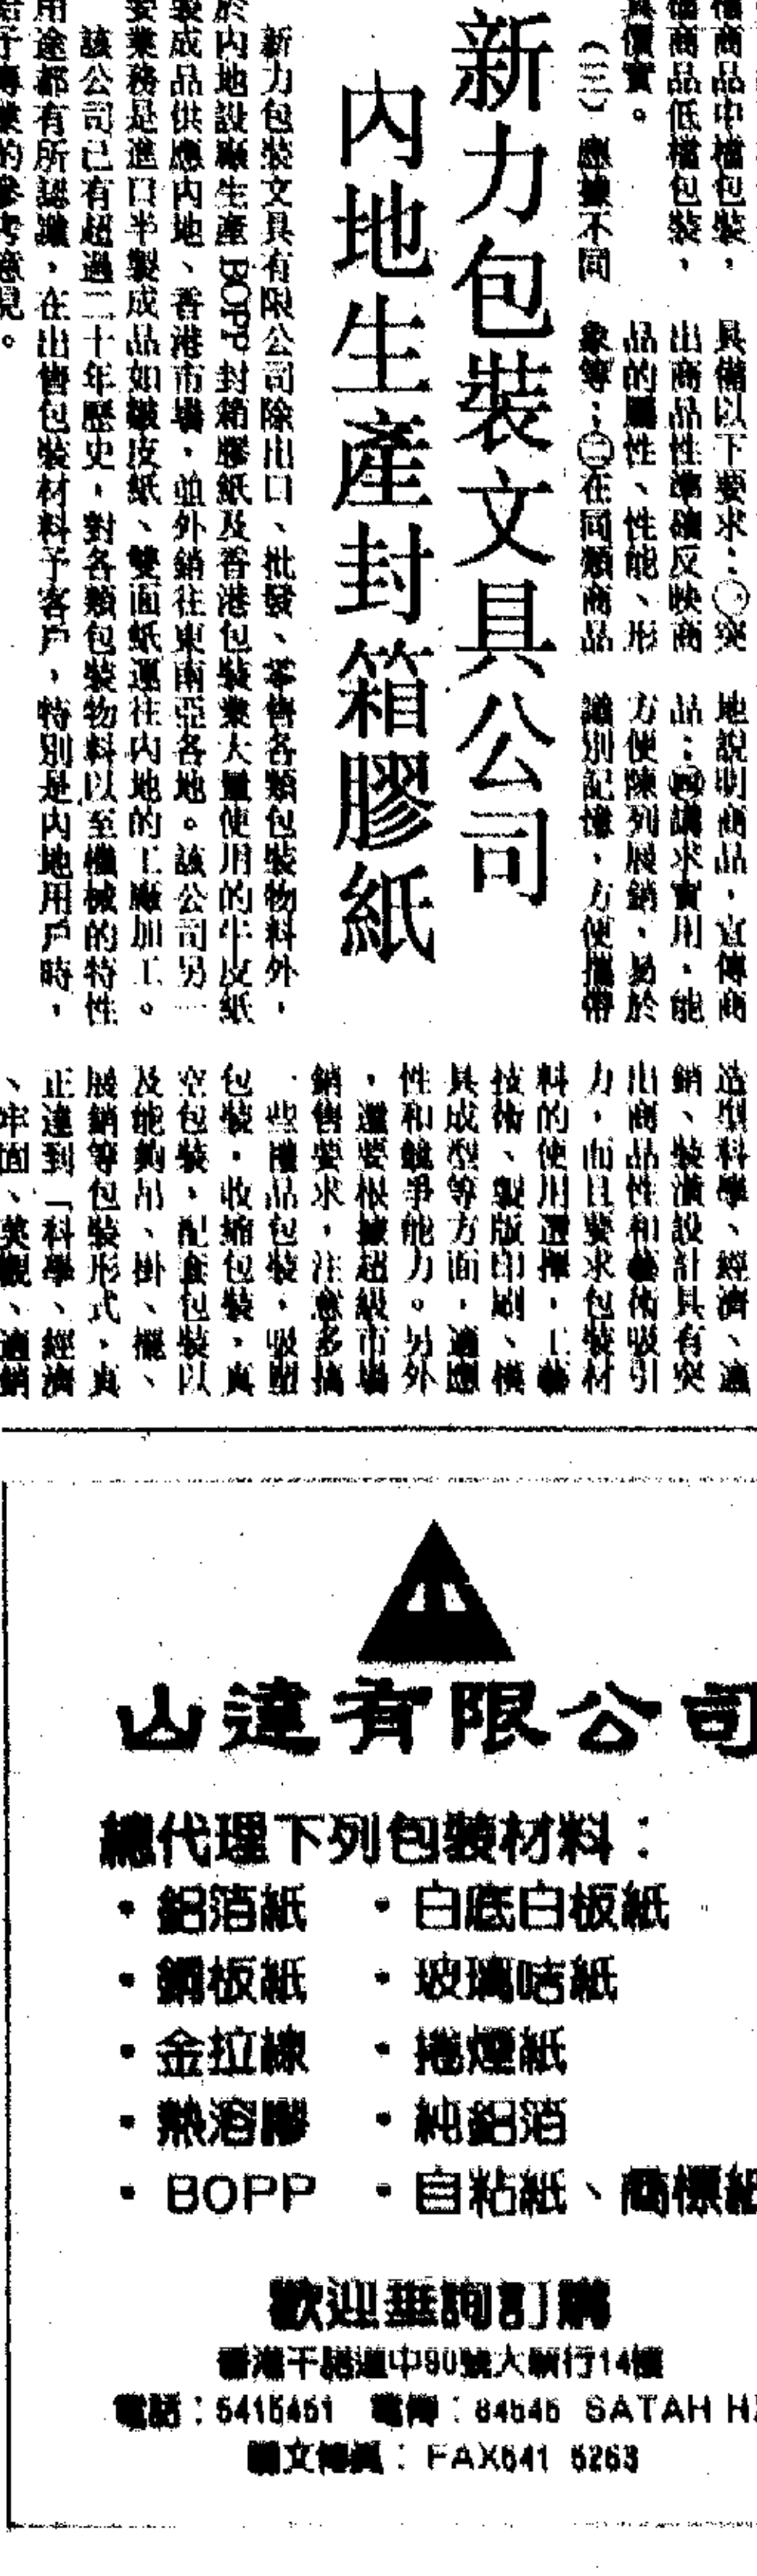 檔商品中檔包裝，
檔商品低檔包裝，
具價實。
（三）應據不同
具備以下要求：㊀突
出商品性準確反映商
品的屬性、性能、形
象等；㊁在同類商品
地說明商品，宣傳商
品；㊃講求實用，能
方便陳列展銷，易於
識別記憶，方便攜帶
新力包裝文具公司
內地生產封箱膠紙
新力包裝文具有限公司除出口、批發、零售各類包裝物料外，
於內地設廠生產BOPP封箱膠紙及香港包裝業大量使用的牛皮紙
製成品供應內地、香港市場，並外銷往東南亞各地。該公司另一
要業務是進口半製成品如皺皮紙、雙面紙運往內地的工廠加工。
該公司已有超過二十年歷史，對各類包裝物料以至機械的特性
用途都有所認識，在出售包裝材料予客戶，特別是內地用戶時，
給予專業的參考意見。
造型科學、經濟、適
銷、裝潢設計具有突
出商品性和藝術吸引
力，而且要求包裝材
料的使用選擇，工藝
技術、製版印刷、模
具成型等方面，適應
性和競爭能力。另外
，還要根據超級市場
銷售要求，注意多搞
一些禮品包裝，吸塑
包裝，收縮包裝，真
空包裝，配套包裝以
及能夠吊、掛、擺、
展銷等包裝形式，真
正達到「科學、經濟
、牢固、美觀、適銷
山達有限公司
總代理下列包裝材料：
・鋁箔紙 ・白底白板紙
・銅板紙 ・玻璃咭紙
・金拉線 ・捲煙紙
・熱溶膠 ・純鋁箔
・BOPP ・自粘紙、商標紙
歡迎垂詢訂購
香港干諾道中90號大新行14樓
電話：5415451 電傳：84545 SATAH HX
圖文傳真：FAX541 5263